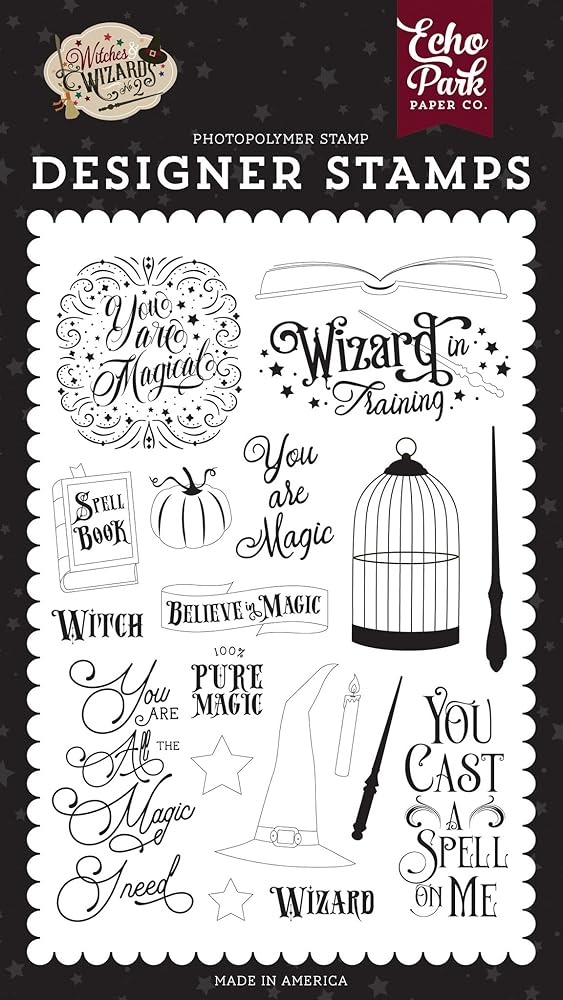 Witches &
WIZARDS
No. 2
Echo
Park
PAPER CO.
PHOTOPOLYMER STAMP
DESIGNER STAMPS
You
are
Magical
Wizard in
Training
SPELL
BOOK
You
are
Magic
WITCH
BELIEVE in MAGIC
100%
PURE
MAGIC
You
ARE
All THE
Magic
I need
YOU
CAST
A
SPELL
ON ME
WIZARD
MADE IN AMERICA